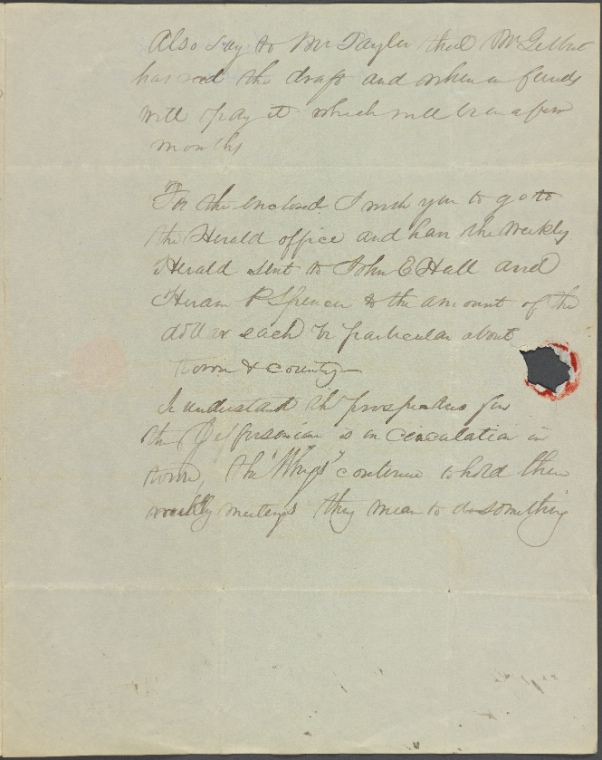 Also say to Mr Taylor that Mr Gilbert
has not the draft and when in funds
will pay it which will be in a few
months
For the enclosed I wish you to go to
the Herald office and have the Weekly
Herald sent to John E Hall and
Hiram P Spencer to the amount of the
dollar each be particular about
town & county
I understand the prospectus for
the Jeffersonian is in circulation in
town, the "Whigs" continue to hold their
weekly meetings they mean to do something